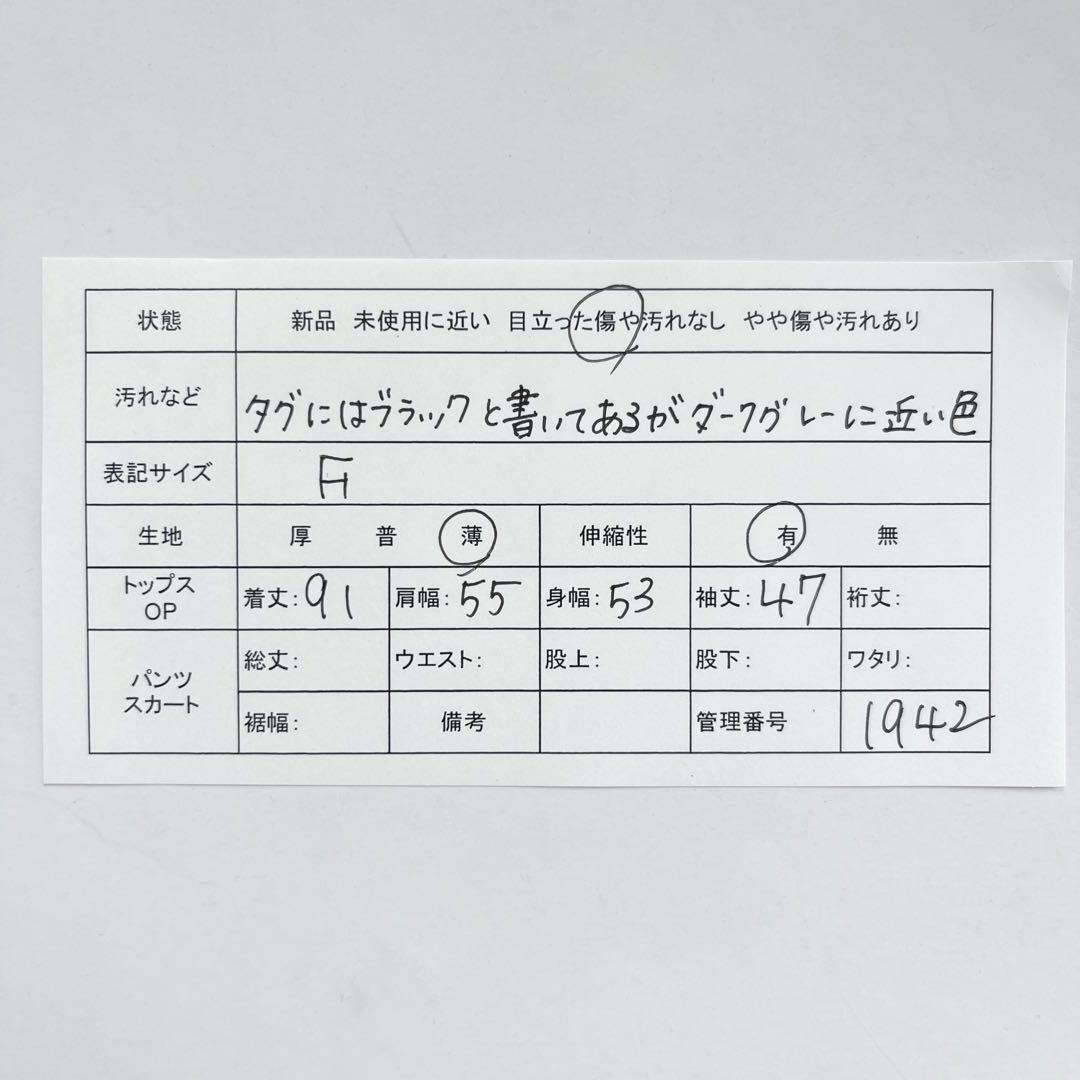 状態 新品 未使用に近い 目立った傷や汚れなし やや傷や汚れあり
汚れなど タグにはブラックと書いてあるがダークグレーに近い色
表記サイズ F
生地 厚 普 薄 伸縮性 有 無
トップス
OP 着丈:91 肩幅:55 身幅:53 袖丈:47 裄丈:
パンツ
スカート 総丈: ウエスト: 股上: 股下: ワタリ:
裾幅: 備考 管理番号 1942